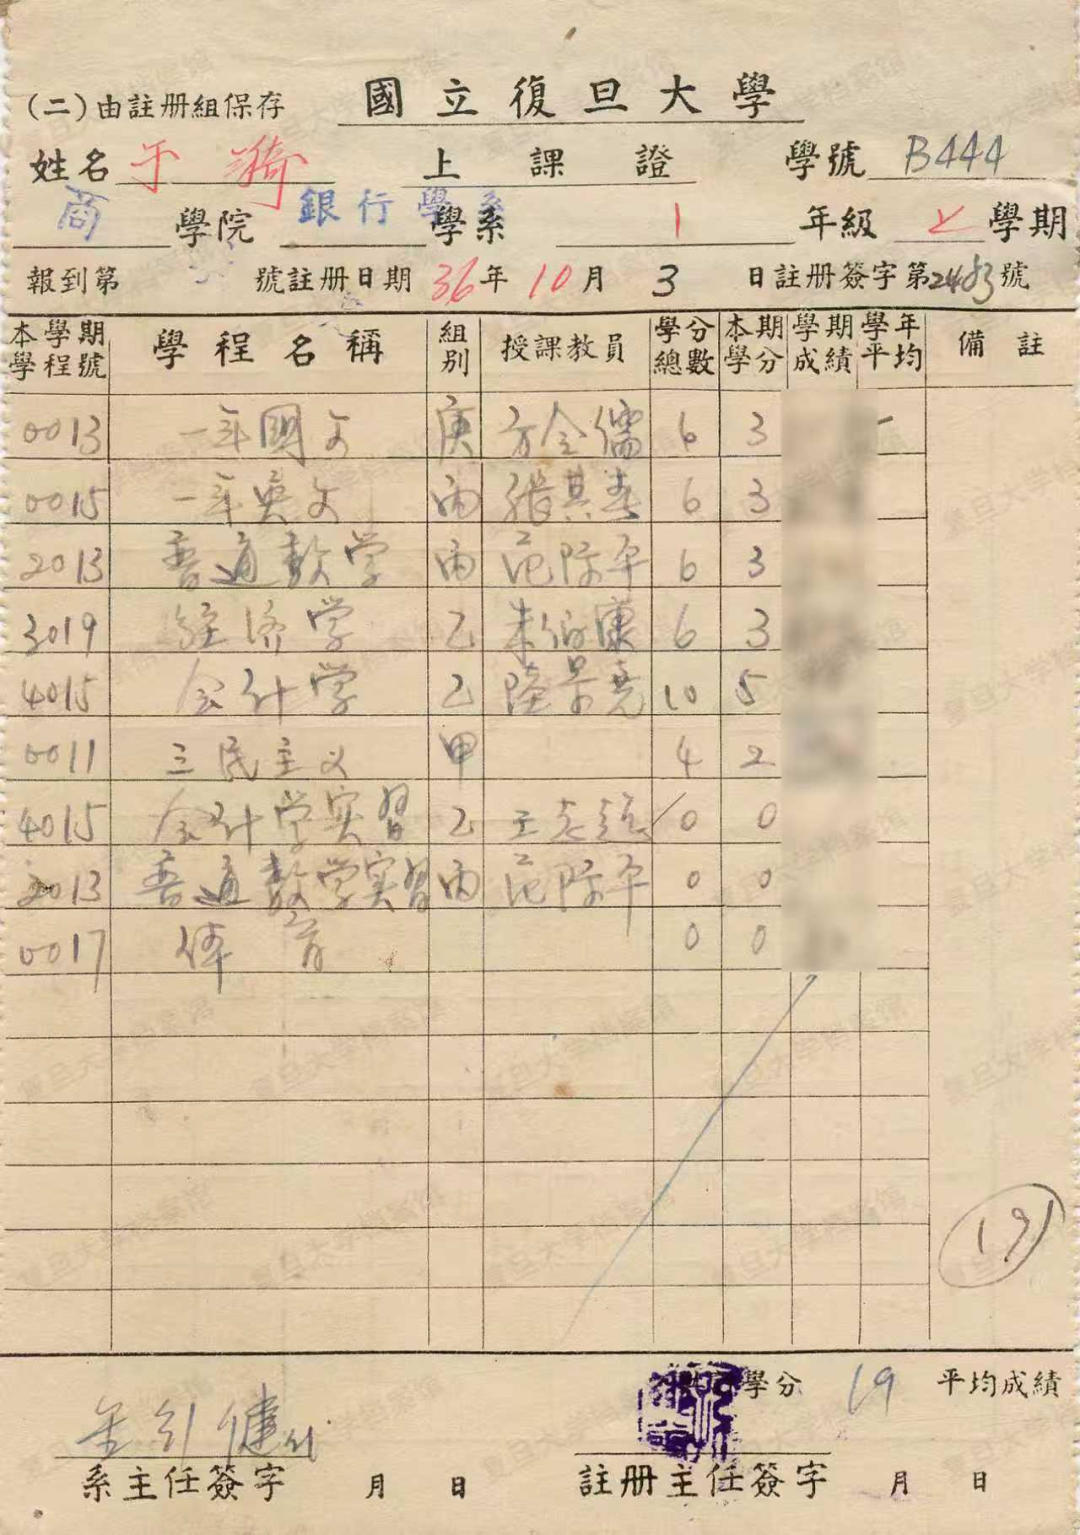 國立復旦大學
(二)由註冊組保存
姓名 于漪 上課證 學號 B444
商 學院 銀行學系 學系 1 年級 上 學期
報到第 號註冊日期 36年 10月 3 日註冊簽字第2483號
本學期學程號 學程名稱 組別 授課教員 學分總數 本期學分 學期成績 學年平均 備註
0013 一年國文 庚 方令儒 6 3
0015 一年英文 丙 張其春 6 3
2013 普通数学 丙 范際平 6 3
3019 经济学 乙 朱伯康 6 3
4015 会计学 乙 陸景堯 10 5
0011 三民主义 甲 4 2
4015 会计学实習 乙 王志 0 0
2013 普通数学实習 丙 范際平 0 0
0017 体育 0 0
19
學分 19 平均成績
健
系主任簽字 月 日 註冊主任簽字 月 日